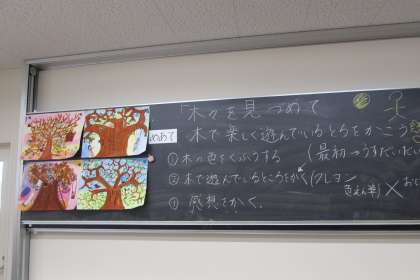 木々を見つめて
めあて 木で楽しく遊んでいるところをかこう
①木の色をくふうする (最初
②木で遊んでいるところをかく(クレヨン
色えん筆)×
感想をかく。